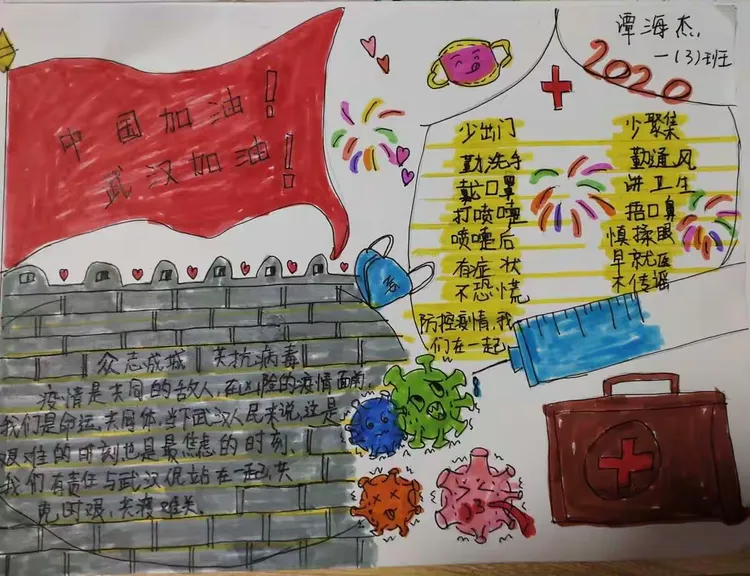 中国加油!
武汉加油!
谭海杰
一(3)班
2020
少出门
勤洗手
戴口罩
打喷嚏
喷嚏后
有症状
不恐慌
少聚集
勤通风
讲卫生
捂口鼻
慎揉眼
早就医
不传谣
防控疫情,我
们在一起
众志成城 共抗病毒
疫情是共同的敌人,在凶险的疫情面前,
我们是命运共同体,当下武汉人民来说,这是
艰难的时刻也是最焦虑的时刻.
我们有责任与武汉人民站在一起,共
克时艰,共渡难关.